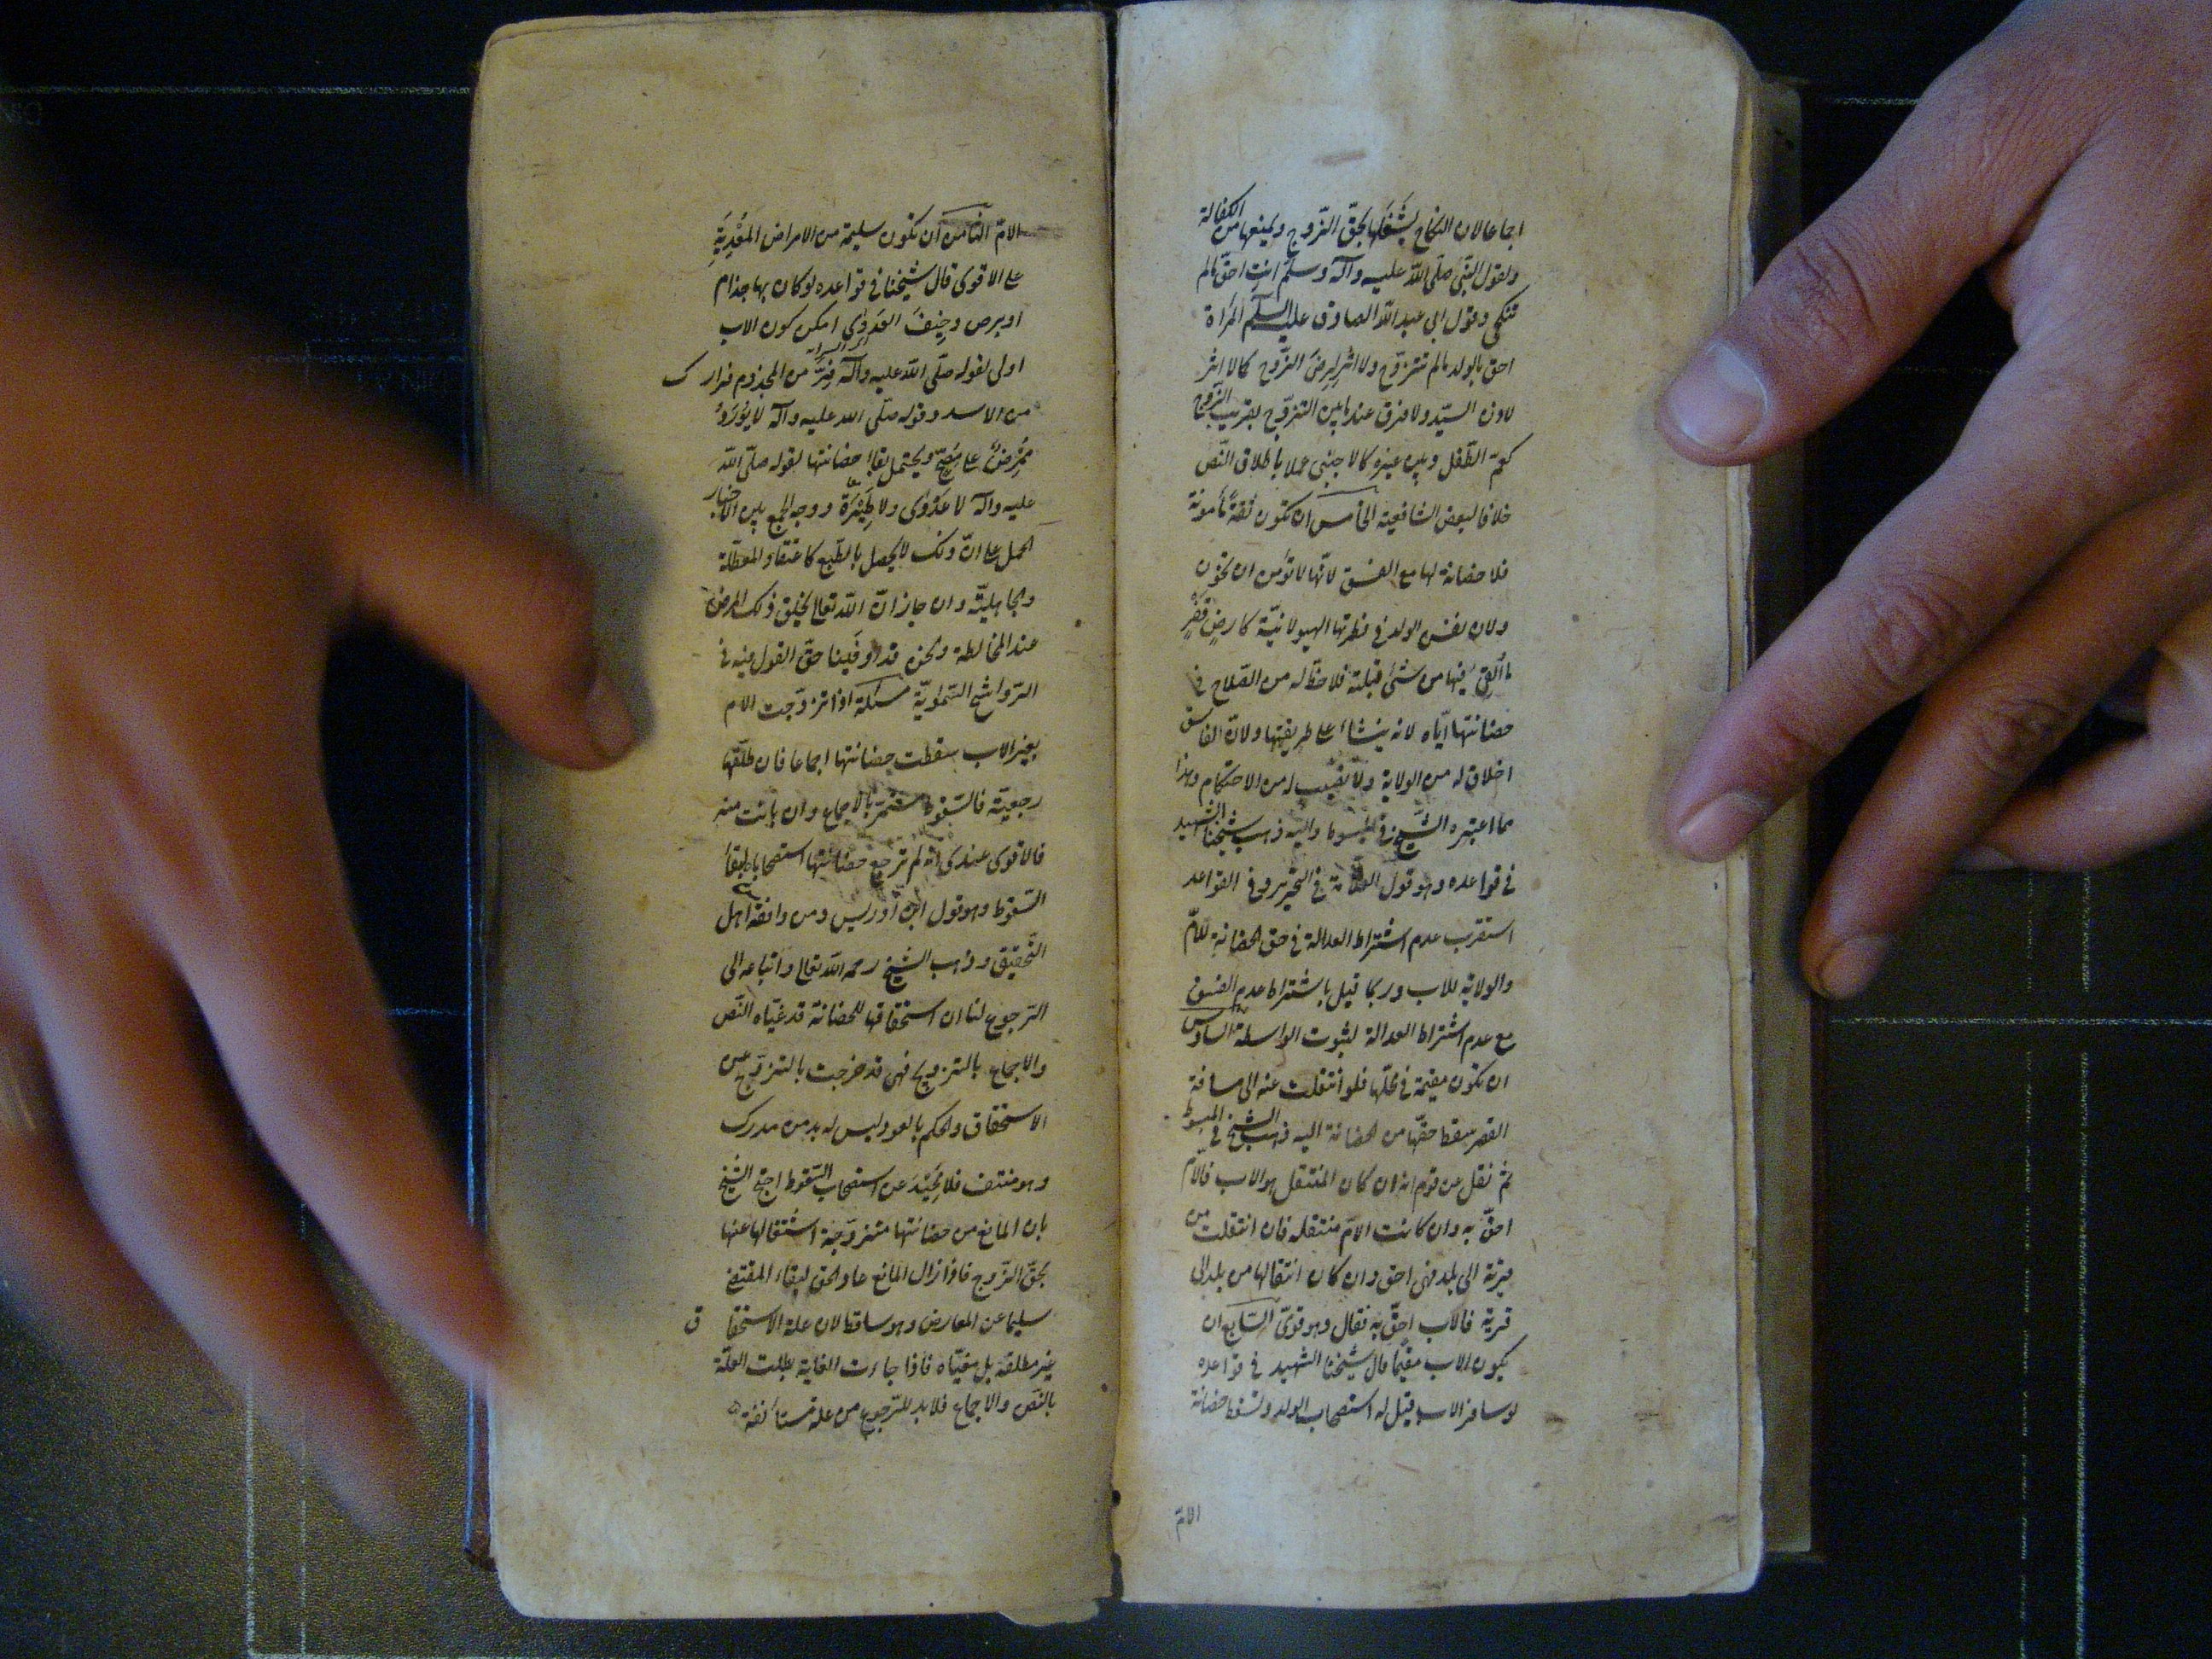 اجماعا لان النكاح يشغلها بحق الزوج ويمنعها من الكفالة
ولقول النبى صلى الله عليه وآله وسلم انت احق ما لم
تنكحى وقول ابى عبد الله الصادق عليه السلم المراة
احق بالولد ما لم تتزوج ولا اثر لرضى الزوج كما لا اثر
لاذن السيد ولا فرق عندنا بين التزوج بقريب الزوج
كعم الطفل وبين غيره كالاجنبى عملا باطلاق النص
خلافا لبعض الشافعية الخامس ان تكون ثقة مأمونة
فلا حضانة لها مع الفسق لانها لا تؤمن ان تخون
ولان نفس الولد فى فطرتها الهيولانية كارض قفر
ما ألقى فيها من شئ قبلته فلا حظ له من الصلاح فى
حضانتها اياه لانه ينشأ على طريقتها ولان الفاسق
لا خلاق له من الولاية ولا نصيب له من الاحتكام وهذا
مما اعتبره الشيخ فى المبسوط واليه ذهب شيخنا الشهيد
فى قواعده وهو قول العلامة فى التحرير وفى القواعد
استقرب عدم اشتراط العدالة فى حق الحضانة للام
والولاية للاب وربما قيل باشتراط عدم الفسق
مع عدم اشتراط العدالة لثبوت الواسطة السادس
ان تكون مقيمة فى محلها فلو انتقلت عنه الى مسافة
القصر سقط حقها من الحضانة اليه ذهب الشيخ فى المبسوط
ثم نقل من قوم انه ان كان المنتقل هو الاب فالام
احق به وان كانت الام منتقلة فان انتقلت من
قرية الى بلد فهى احق وان كان انتقالها من بلد الى
قرية فالاب احق به فقال وهو قوى السابع ان
يكون الاب مقيما قال شيخنا الشهيد فى قواعده
لو سافر الاب قيل له استصحاب الولد وتسقط حضانة
الام
الام الثامن ان تكون سليمة من الامراض المعدية
على الاقوى قال شيخنا فى قواعده لو كان بها جذام
او برص وخيف العدوى امكن كون الاب
اولى لقوله صلى الله عليه وآله فر من المجذوم فرارك
من الاسد وقوله صلى الله عليه وآله لا يورد
ممرض على مصح ويحتمل بقاء حضانتها لقوله صلى الله
عليه وآله لا عدوى ولا طيرة ووجه الجمع بين الاخبار
الحمل على ان ذلك لا يحصل بالطبع كاعتقاد المعطلة
والجاهلية وان جاز ان الله تعالى يخلق ذلك المرض
عند المخالطة ونحن قد اوفينا حق القول فيه فى
الرواشح السماوية مسئلة اذا تزوجت الام
بغير الاب سقطت حضانتها اجماعا فان طلقها
رجعية فالسقوط مستمر بالاجماع وان بانت منه
فالاقوى عندى انه لم ترجع حضانتها استصحابا لبقاء
السقوط وهو قول ابن ادريس ومن وافقه اهل
التحقيق وذهب الشيخ رحمه الله تعالى واتباعه الى
الرجوع لنا ان استحقاقها للحضانة قد غياه النص
والاجماع بالتزويج فهى قد خرجت بالتزوج عن
الاستحقاق والحكم بالعود ليس له بد من مدرك
وهو منتف فلا محيد عن استصحاب السقوط احتج الشيخ
بان المانع من حضانتها متزوجة اشتغالها عنها
بحق الزوج فاذا زال المانع عاد الحق لبقاء المقتضى
سليما عن المعارض وهو ساقط لان علة الاستحقاق
غير مطلقة بل مغياه فاذا جاءت الغاية بطلت العلة
بالنص والاجماع فلا بد للرجوع من علة مستأنفة